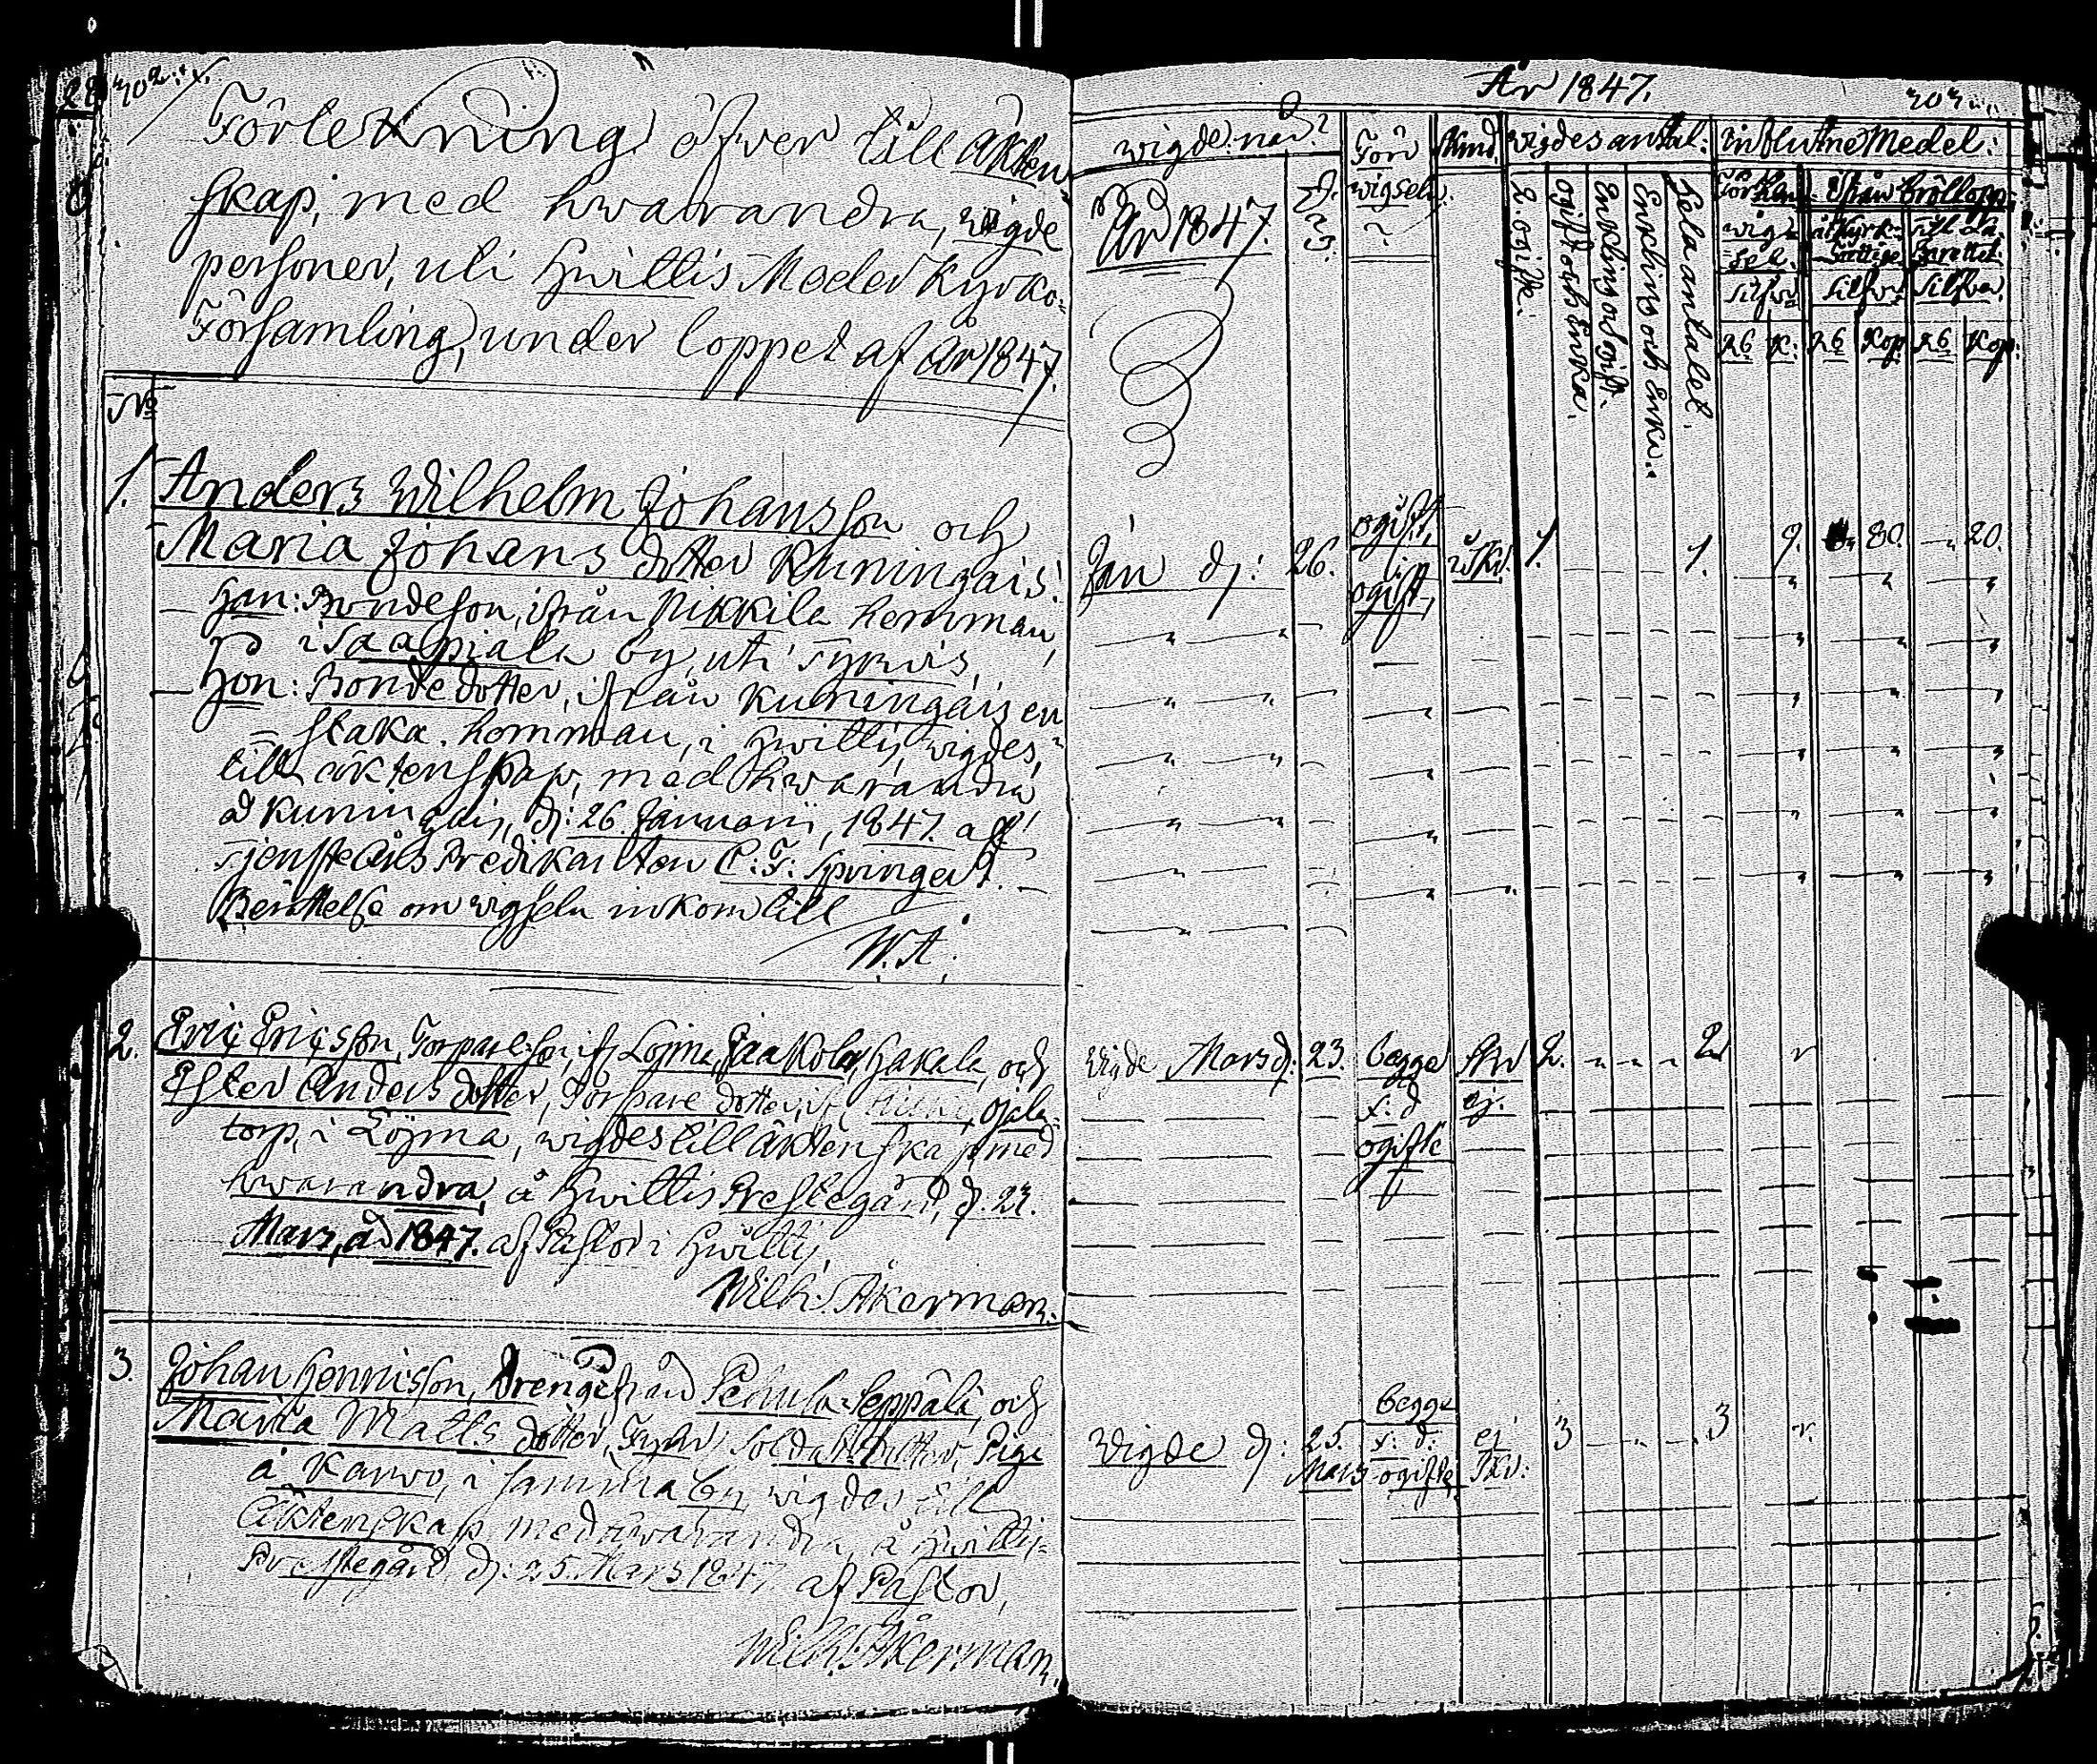 302.
Förtekning öfver till äkten
skap, med hwarandra, wigde
personer, uti Hwittis Moder Kyrko-
Församling, under loppet af år 1847.
No
1. Anders Wilhelm Johansson och
Maria Johans dotter Kuningais.
Han: Bondeson, ifrån Nikkilä hemman,
i by, uti Tyrwis,
Hon: Bondedotter, ifrån Kuningais en
staka hemman, i Hwittis, wigdes,
till äktenskap, med hwarandra
å Kuningais, d: 26. Januarii, 1847. af
Predikanten C: F: Springert.
Berättelse om wigseln inkom till
W. Å.
2. Eric Ericsson, Torpareson, ifr. Löjma, Jaakola, Hakala, och
Ester Anders dotter, Torpare dotter, ifr. Ojala
torp, i Löjma, wigdes till äktenskap med
hwarandra, å Hwittis Prestegård, d. 23.
Mars, år 1847. af Pastor i Hwittis,
Wilh. Åkerman.
3. Johan Hennisson, Dreng från Seppälä, och
Maria Matts dotter, Soldats dotter, Piga
å Karwo, i samma by, wigdes till
Äktenskap med hwarandra, å Hwittis
Prestegård, d: 25. Mars 1847. af Pastor,
Wilh. Åkerman.
År 1847.
303
wigde:
År 1847.
För
wigseln
wigdes antal: influtne Medel:
2. ogifte.
ogift och Enka.
Enkling och ogift.
Enkling och Enka.
Hela antalet.
För
wigsel.
Silfver
Från Bröllopp:
åt Kyrk-
Fattige
Silfver
Till La-
zarettet.
Silfver
K: Kop. Kop:
Jan d: 26. ogift, ogift, 1. 1. 9. 80. 20.
Wigde Mars d: 23. begge s: d ogifte skr ej. 2. 2
Wigde d: 25. Mars begge s: d: ogifte ej skr: 3 3